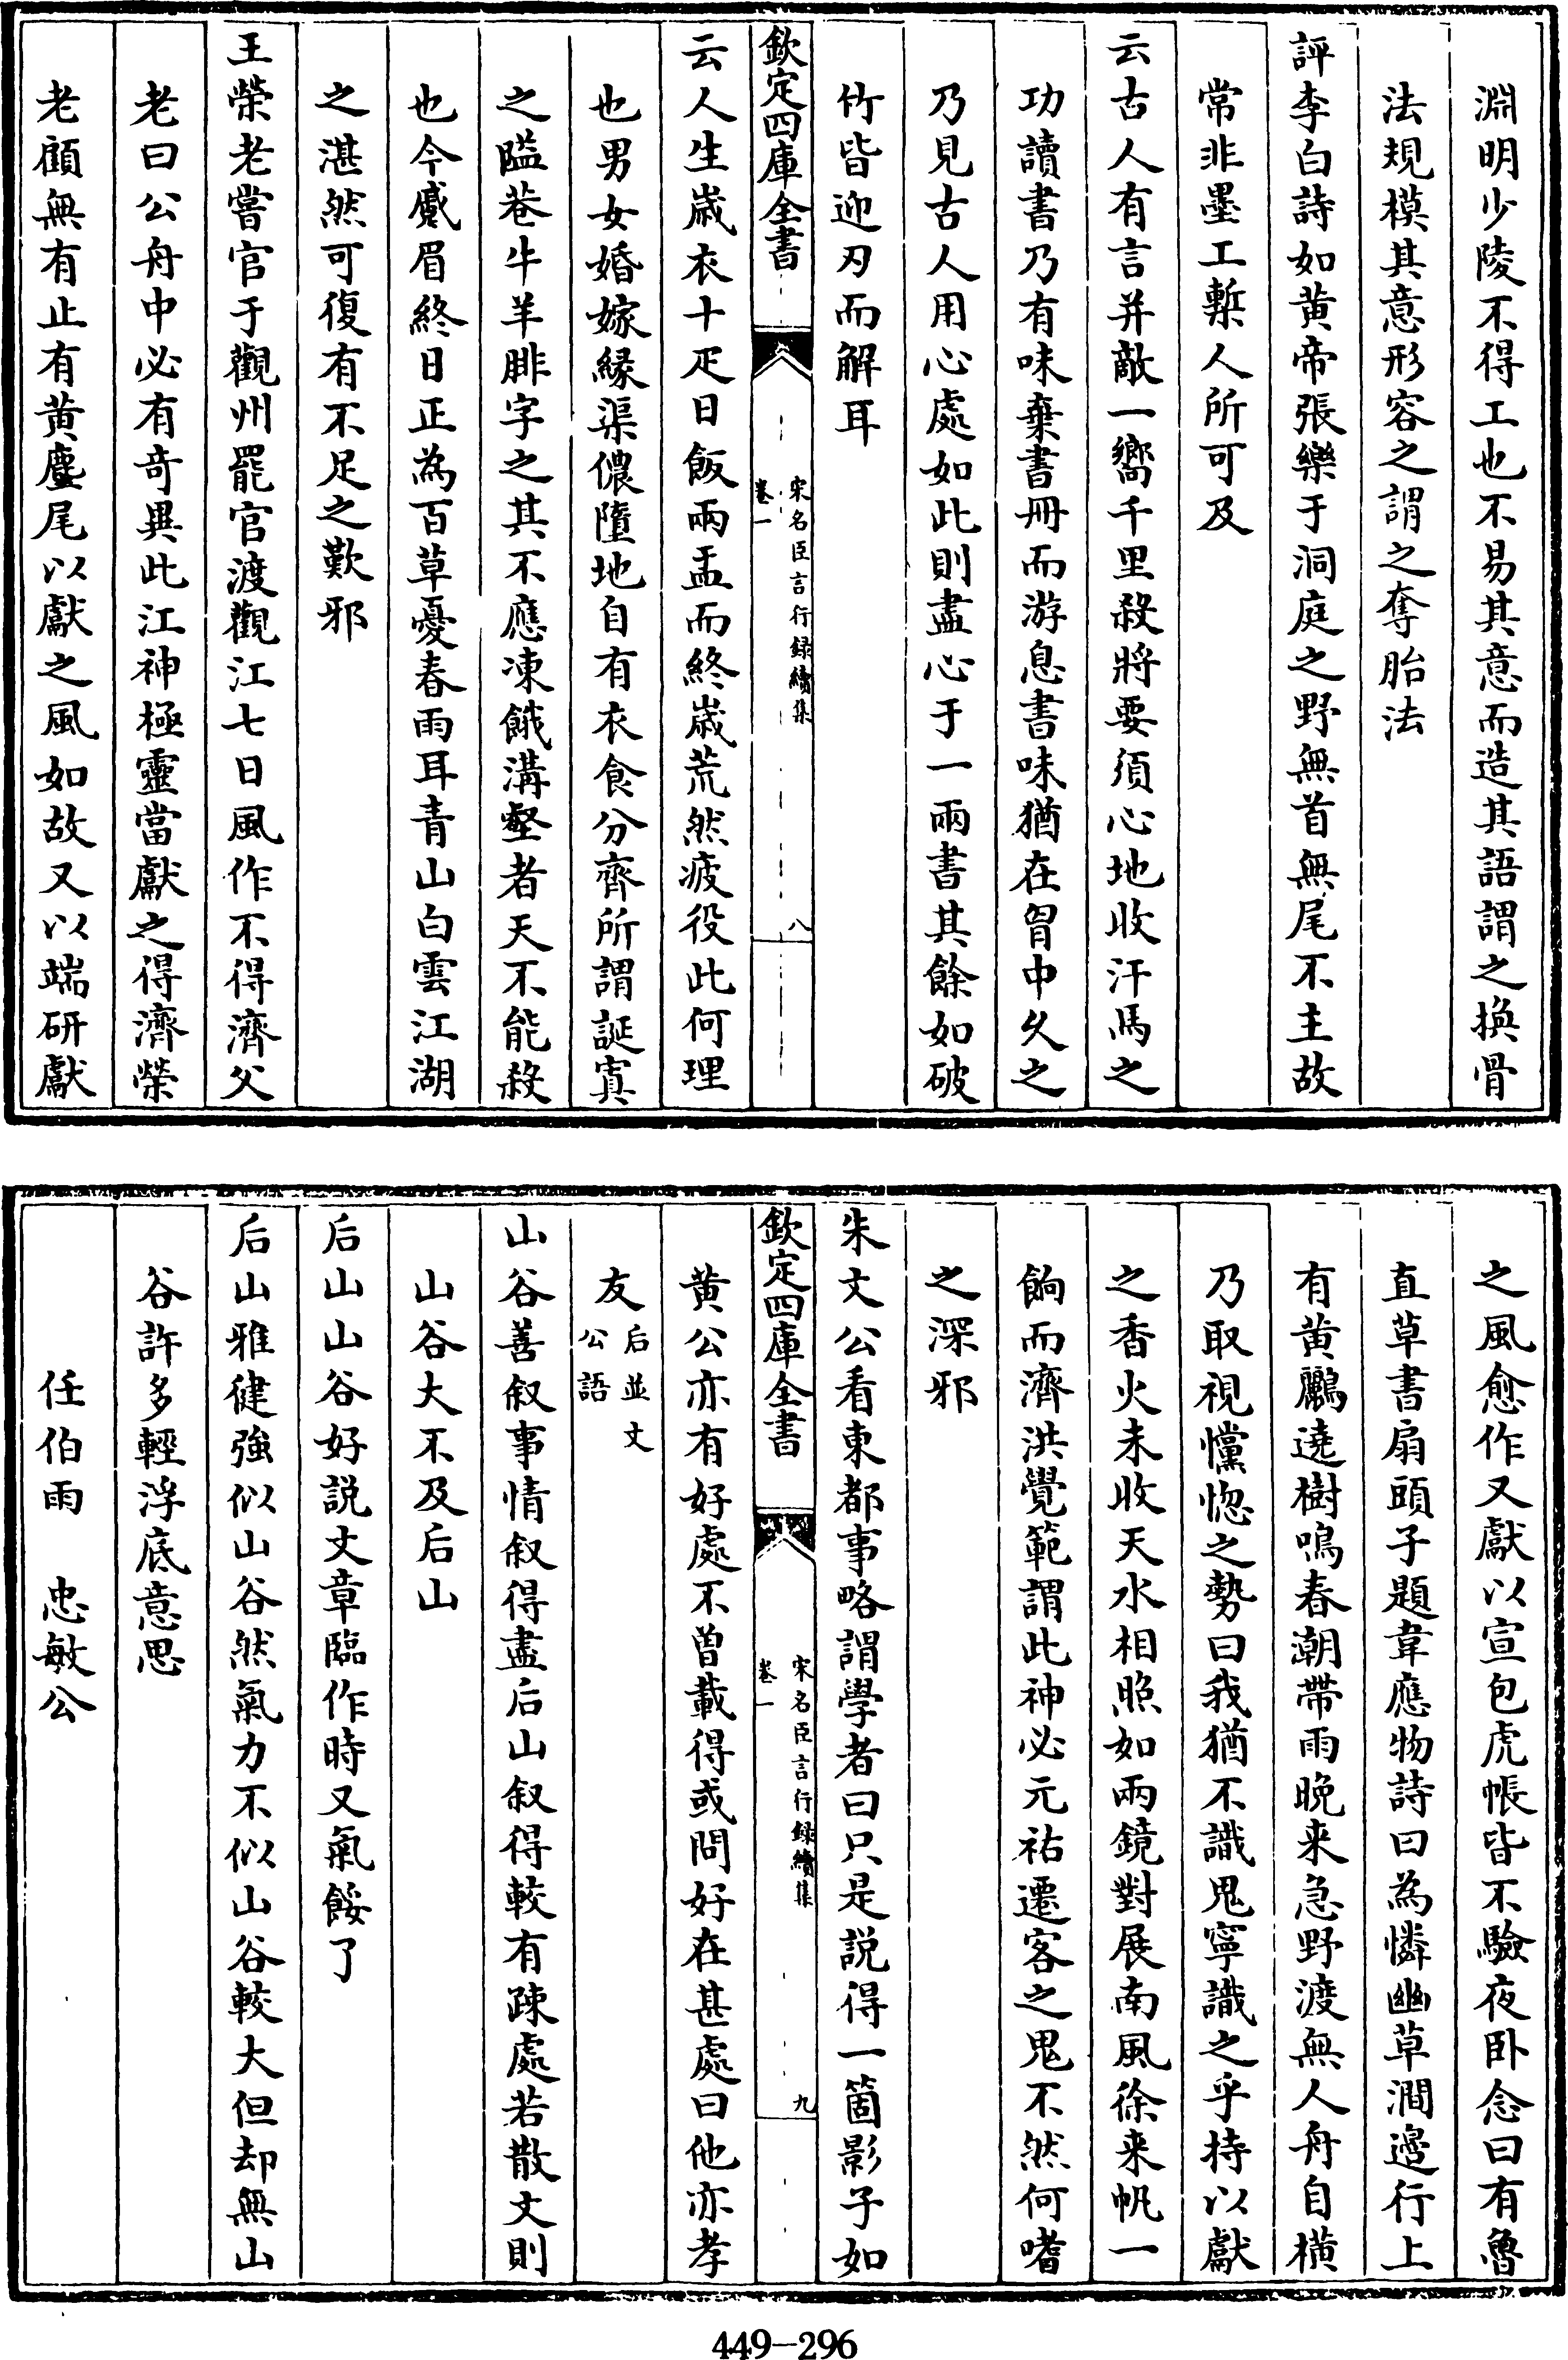 淵明少陵不得工也不易其意而造其語謂之換骨
法規模其意形容之謂之奪胎法
評李白詩如黄帝張樂于洞庭之野無首無尾不主故
常非墨工槧人所可及
云古人有言并敵一嚮千里殺將要須心地收汗馬之
功讀書乃有味棄書冊而游息書味猶在胷中久之
乃見古人用心處如此則盡心于一兩書其餘如破
竹皆迎刃而解耳
欽定四庫全書
宋名臣言行録續集
卷一
八
云人生嵗衣十疋日飯兩盂而終嵗荒然疲役此何理
也男女婚嫁縁渠儂墮地自有衣食分齊所謂誕寘
之隘巷牛羊腓字之其不應凍餓溝壑者天不能殺
也今蹙眉終日正為百草憂春雨耳青山白雲江湖
之湛然可復有不足之歎邪
王榮老嘗官于觀州罷官渡觀江七日風作不得濟父
老曰公舟中必有奇異此江神極靈當獻之得濟榮
老顧無有止有黄麈尾以獻之風如故又以端研獻
之風愈作又獻以宣包虎帳皆不驗夜卧念曰有魯
直草書扇頭子題韋應物詩曰為憐幽草澗邉行上
有黄鸝遶樹鳴春潮帶雨晚来急野渡無人舟自橫
乃取視懭惚之勢曰我猶不識鬼寧識之乎持以獻
之香火未收天水相照如兩鏡對展南風徐来帆一
餉而濟洪覺範謂此神必元祐遷客之鬼不然何嗜
之深邪
朱文公看東都事略謂學者曰只是説得一箇影子如
欽定四庫全書
宋名臣言行録續集
卷一
九
黄公亦有好處不曽載得或問好在甚處曰他亦孝
友后並文公語
山谷善叙事情叙得盡后山叙得較有疎處若散文則
山谷大不及后山
后山山谷好説文章臨作時又氣餒了
后山雅健強似山谷然氣力不似山谷較大但却無山
谷許多輕浮底意思
任伯雨　忠敏公
449-296